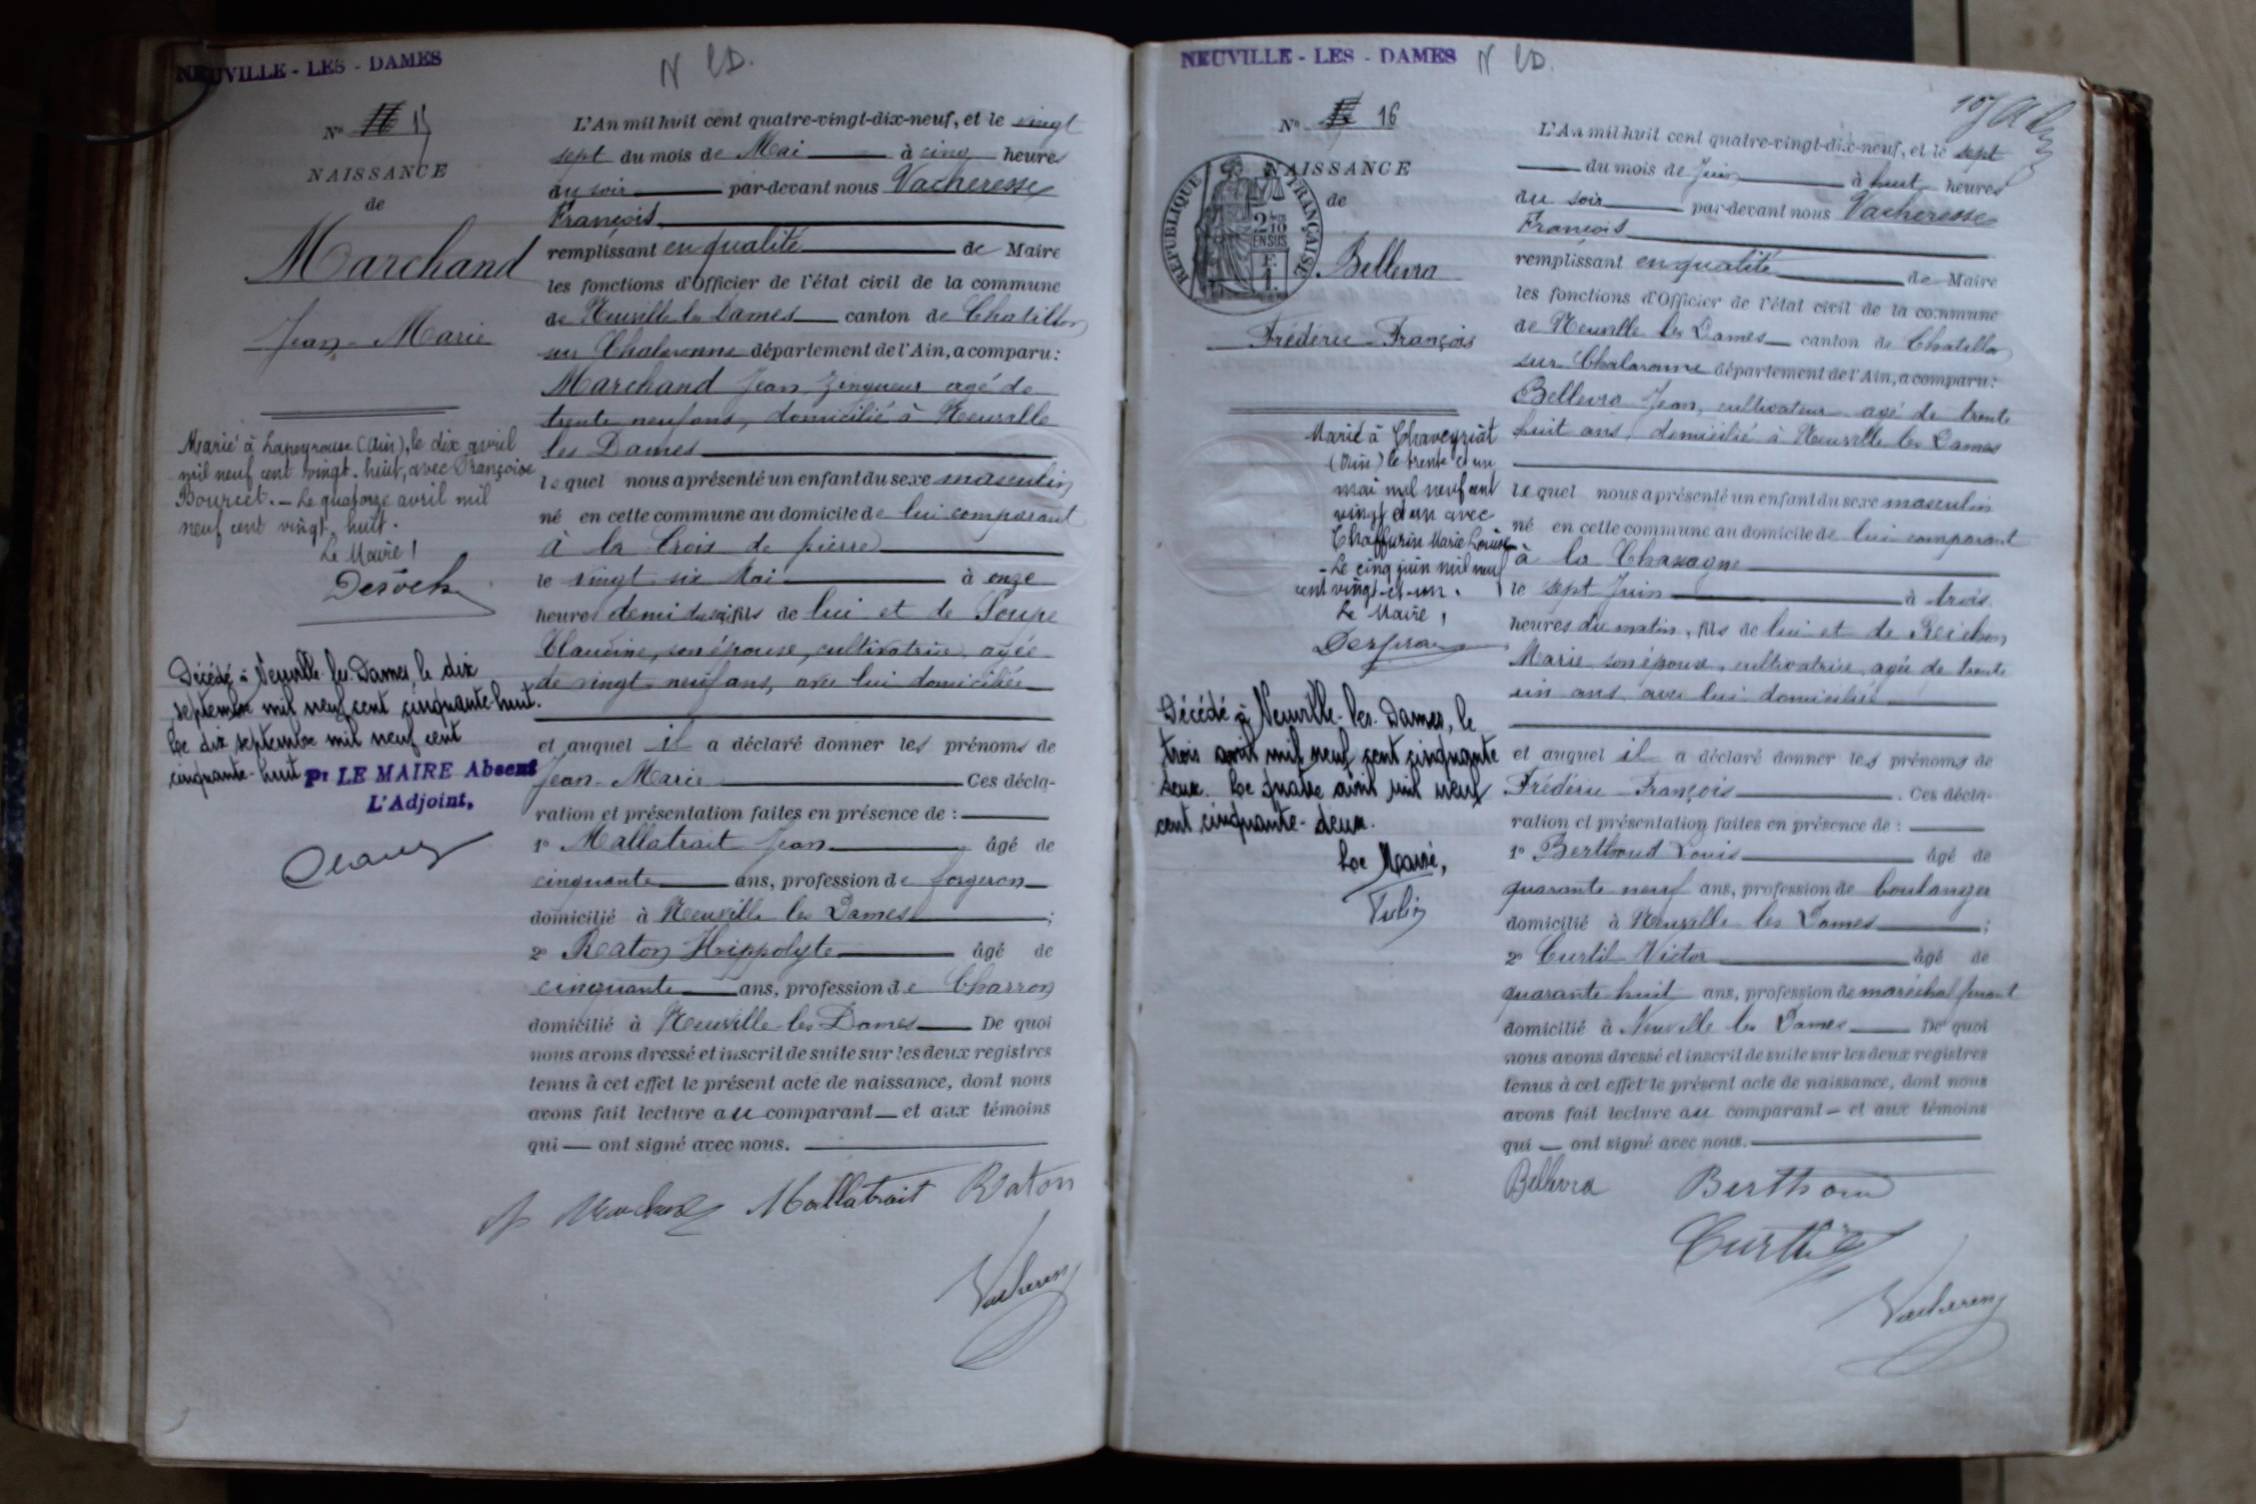 NEUVILLE - LES - DAMES
N LD.
Nº 15
NAISSANCE
de
Marchand
Jean-Marie
Marié à Lapeyrouse (Ain), le dix avril
mil neuf cent vingt-huit, avec Françoise
Bourcet. — Le quatorze avril mil
neuf cent vingt-huit.
Le Maire !
Décédé à Neuville-les-Dames, le dix
septembre mil neuf cent cinquante-huit.
Le dix septembre mil neuf cent
cinquante-huit Pr LE MAIRE Absent
L'Adjoint,
L'An mil huit cent quatre-vingt-dix-neuf, et le vingt
sept du mois de Mai à cinq heures
du soir par-devant nous Vacheresse
François
remplissant en qualité de Maire
les fonctions d'Officier de l'état civil de la commune
de Neuville les Dames canton de Chatillon
sur Chalaronne département de l'Ain, a comparu :
Marchand Jean, zingueur agé de
trente neuf ans, domicilié à Neuville
les Dames
lequel nous a présenté un enfant du sexe masculin
né en cette commune au domicile de lui comparant
à la Croix de pierre
le vingt six Mai à onze
heures demi du soir, fils de lui et de Poupe
Claudine, son épouse, cultivatrice, agée
de vingt neuf ans, avec lui domiciliée
et auquel il a déclaré donner les prénoms de
Jean-Marie Ces décla-
ration et présentation faites en présence de :
1º Mallatrait Jean âgé de
cinquante ans, profession de forgeron
domicilié à Neuville les Dames ;
2º Raton Hippolyte âgé de
cinquante ans, profession de Charron
domicilié à Neuville les Dames De quoi
nous avons dressé et inscrit de suite sur les deux registres
tenus à cet effet le présent acte de naissance, dont nous
avons fait lecture au comparant et aux témoins
qui ont signé avec nous.
Marchand Mallatrait Raton
NEUVILLE - LES - DAMES N LD.
Nº 16
NAISSANCE
de
RÉPUBLIQUE FRANÇAISE
2/10
EN SUS
F.
1.
Bellevra
Frédéric-François
Marié à Chaveyriat
(Ain) le trente et un
mai mil neuf cent
vingt et un avec
Chaffurin Marie Louise
- Le cinq juin mil neuf
cent vingt-et-un.
Le Maire,
Décédé à Neuville-les-Dames, le
trois avril mil neuf cent cinquante
deux. Le quatre avril mil neuf
cent cinquante-deux.
Le Maire,
L'An mil huit cent quatre-vingt-dix-neuf, et le sept
du mois de Juin à huit heures
du soir par-devant nous Vacheresse
François
remplissant en qualité de Maire
les fonctions d'Officier de l'état civil de la commune
de Neuville les Dames canton de Chatillon
sur Chalaronne département de l'Ain, a comparu :
Bellevra Jean, cultivateur agé de trente
huit ans, domicilié à Neuville les Dames
lequel nous a présenté un enfant du sexe masculin
né en cette commune au domicile de lui comparant
à la Chasagne
le sept Juin à trois
heures du matin, fils de lui et de
Marie son épouse, cultivatrice, agée de trente
un ans, avec lui domiciliée
et auquel il a déclaré donner les prénoms de
Frédéric-François. Ces décla-
ration et présentation faites en présence de :
1º Berthoud Louis âgé de
quarante neuf ans, profession de boulanger
domicilié à Neuville les Dames ;
2º Curtil Victor âgé de
quarante huit ans, profession de maréchal ferrant
domicilié à Neuville les Dames De quoi
nous avons dressé et inscrit de suite sur les deux registres
tenus à cet effet le présent acte de naissance, dont nous
avons fait lecture au comparant et aux témoins
qui ont signé avec nous.
Bellevra Berthoud
Curtil